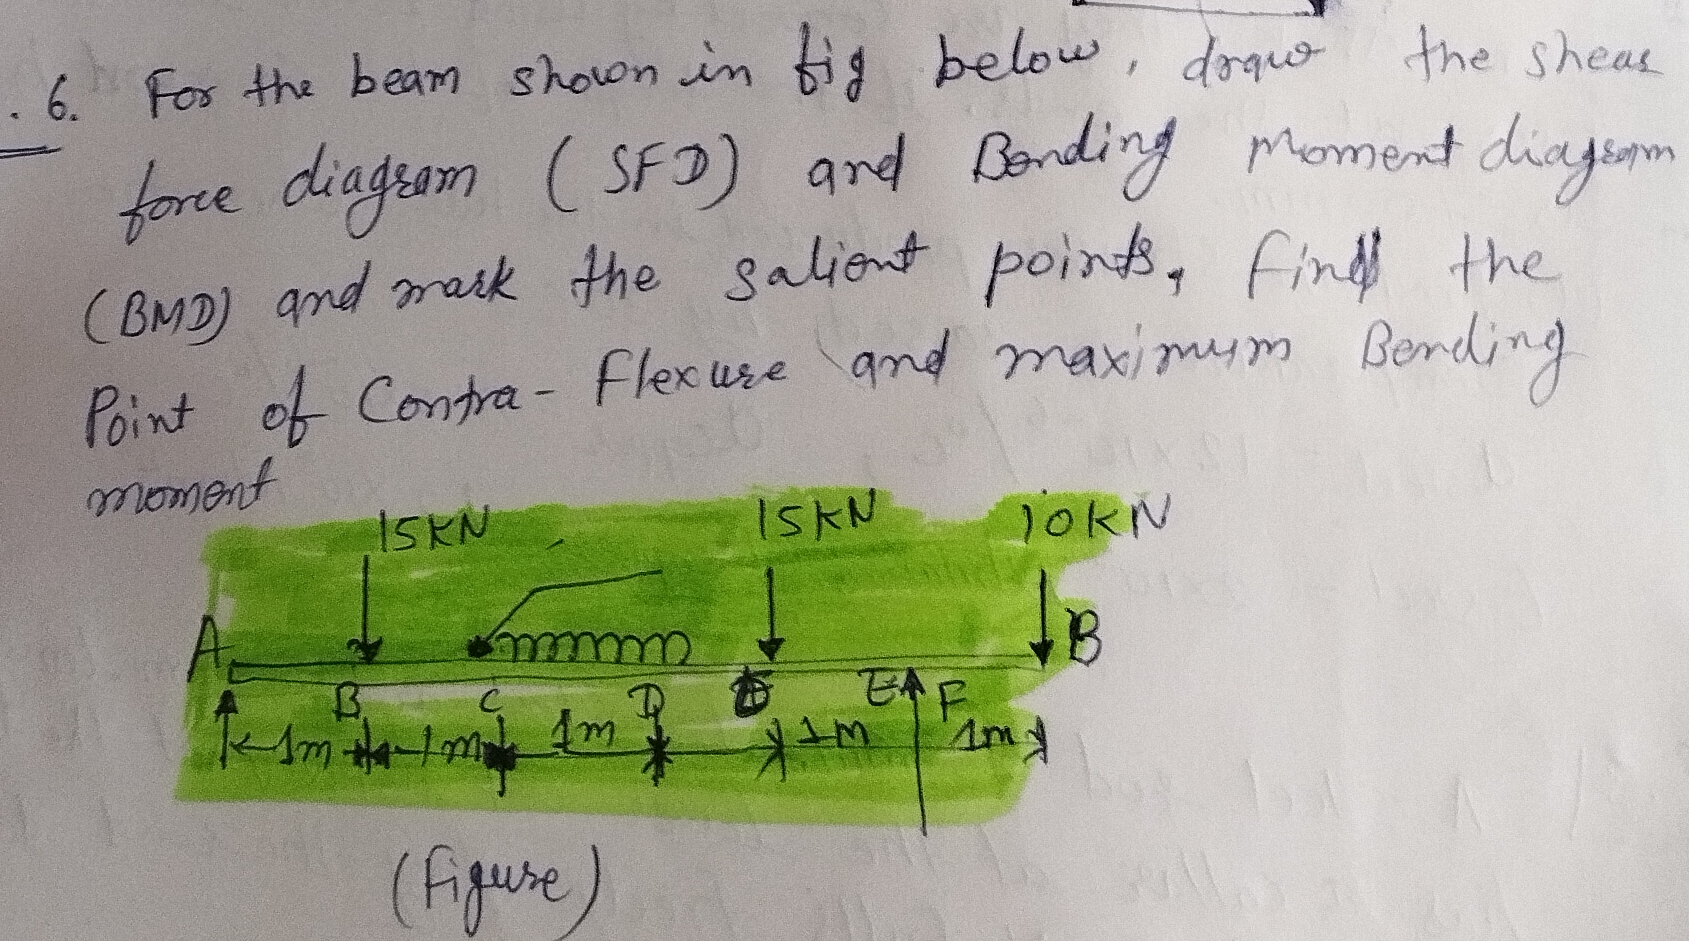 6. For the beam shown in fig below, draw the shear
force diagram (SFD) and Bending Moment diagram
(BMD) and mark the salient points, find the
Point of Contra-Flexure and maximum Bending
moment
15KN 15KN 10KN
A B
B C D E F
1m 1m 1m 1m 1m
(Figure)